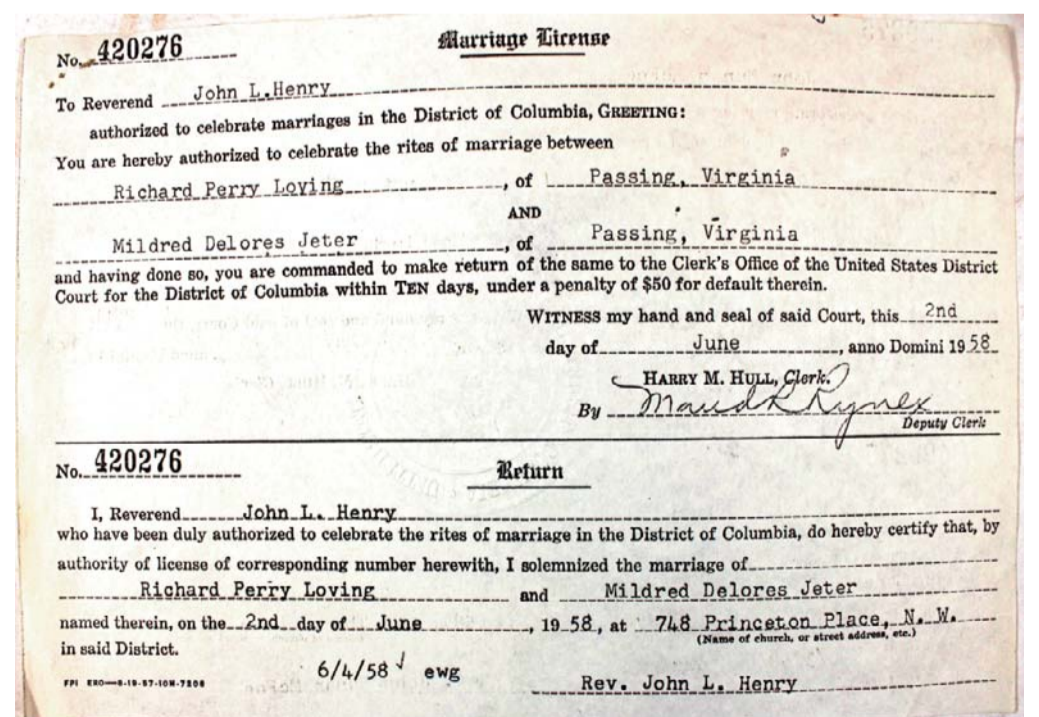 Marriage License
No. 420276
To Reverend John L. Henry
authorized to celebrate marriages in the District of Columbia, GREETING:
You are hereby authorized to celebrate the rites of marriage between
Richard Perry Loving, of Passing, Virginia
AND
Mildred Delores Jeter, of Passing, Virginia
and having done so, you are commanded to make return of the same to the Clerk's Office of the United States District
Court for the District of Columbia within TEN days, under a penalty of $50 for default therein.
WITNESS my hand and seal of said Court, this 2nd
day of June, anno Domini 1958
HARRY M. HULL, Clerk.
By Maud R
Deputy Clerk
No. 420276
Return
I, Reverend John L. Henry
who have been duly authorized to celebrate the rites of marriage in the District of Columbia, do hereby certify that, by
authority of license of corresponding number herewith, I solemnized the marriage of
Richard Perry Loving and Mildred Delores Jeter
named therein, on the 2nd day of June, 1958, at 748 Princeton Place, N. W.
(Name of church, or street address, etc.)
in said District.
6/4/58 ewg
FPI
Rev. John L. Henry